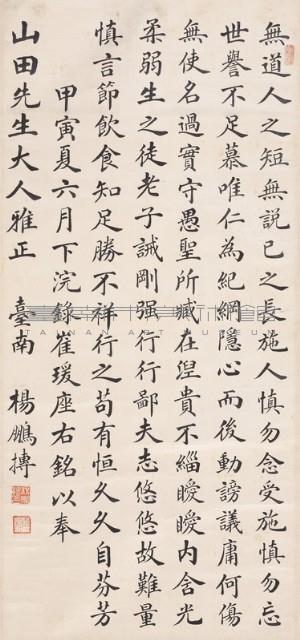 無道人之短無説己之長施人慎勿念受施慎勿忘
世譽不足慕唯仁為紀綱隱心而後動謗議庸何傷
無使名過實守愚聖所臧在涅貴不緇曖曖內含光
柔弱生之徒老子誡剛强行行鄙夫志悠悠故難量
慎言節飲食知足勝不祥行之苟有恒久久自芬芳
甲寅夏六月下浣錄崔瑗座右銘以奉
山田先生大人雅正 臺南 楊鵬搏
TAINAN ART MUSEUM